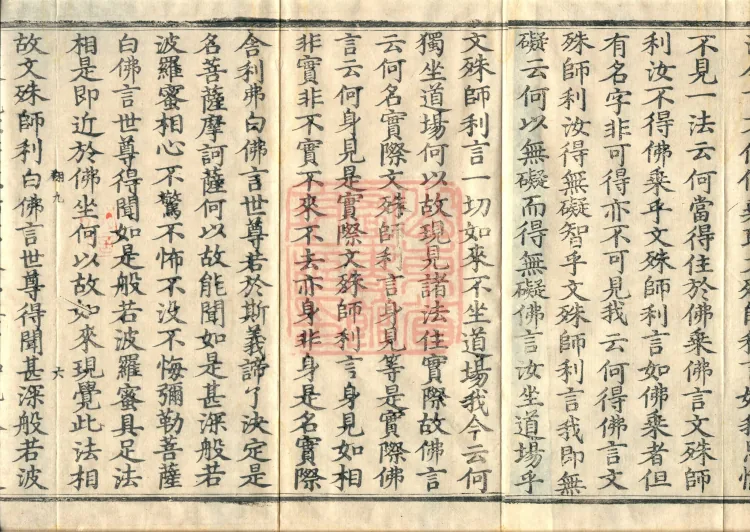 不見一法云何當得住於佛乘佛言文殊師
利汝不得佛乘乎文殊師利言如佛乘者但
有名字非可得亦不可見我云何得佛言文
殊師利汝得無礙智乎文殊師利言我即無
礙云何以無礙而得無礙佛言汝坐道場乎
文殊師利言一切如來不坐道場我今云何
獨坐道場何以故現見諸法住實際故佛言
云何名實際文殊師利言身見等是實際佛
言云何身見是實際文殊師利言身見如相
非實非不實不來不去亦身非身是名實際
舍利弗白佛言世尊若於斯義諦了決定是
名菩薩摩訶薩何以故能聞如是甚深般若
波羅蜜相心不驚不怖不没不悔彌勒菩薩
白佛言世尊得聞如是般若波羅蜜具足法
相是即近於佛坐何以故如來現覺此法相
翔九
六
故文殊師利白佛言世尊得聞甚深般若波